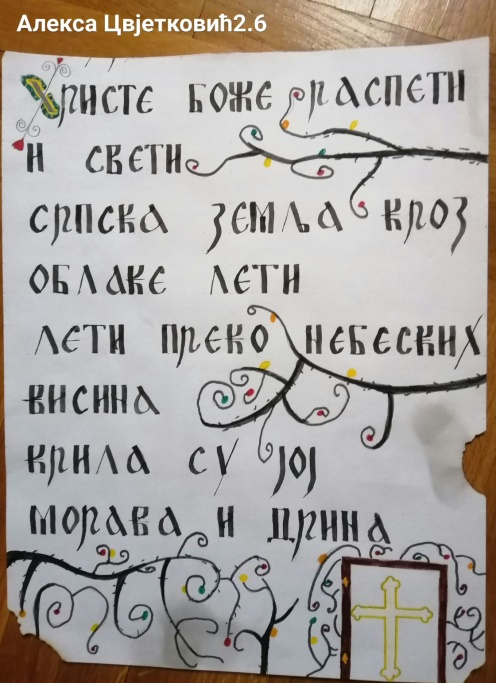 Алекса Цвјетковић2.6
Христе боже распети
и свети
српска земља кроз
облаке лети
лети преко небеских
висина
крила су јој
морава и дрина